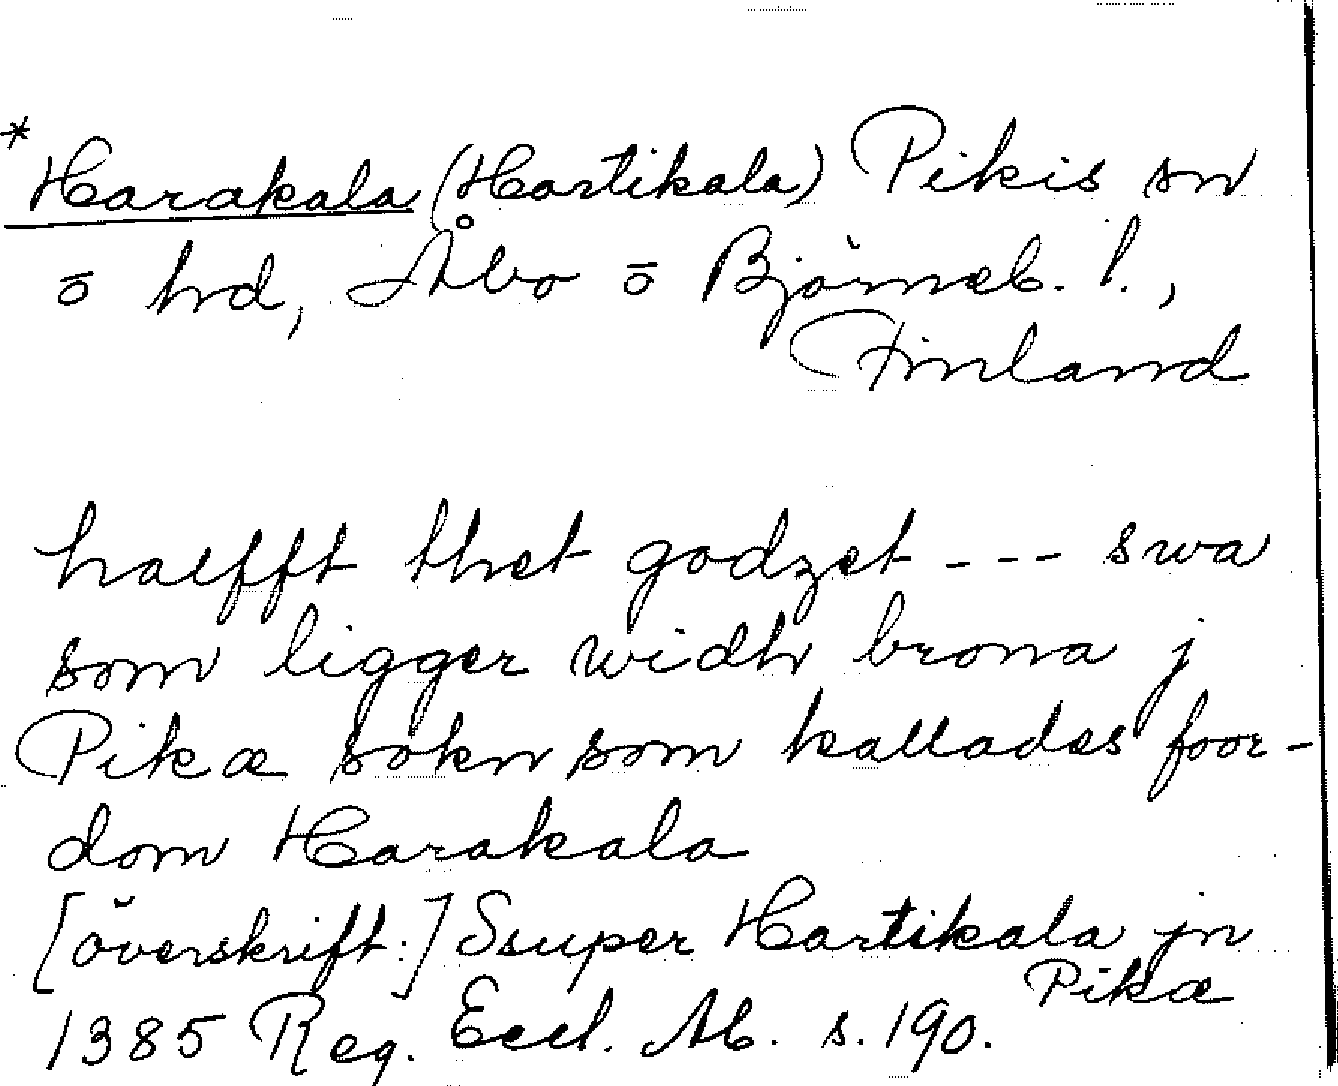 * Harakala (Hartikala) Pikis sn
o̅ hd, Åbo o̅ Björneb. l.,
Finland
halfft thet godzet --- swa
som ligger widh brona j
Pikæ sokn som kallades foor-
dom Harakala
[överskrift:] Ssuper Hartikala jn
Pikæ
1385 Reg. Eccl. Ab. s. 190.